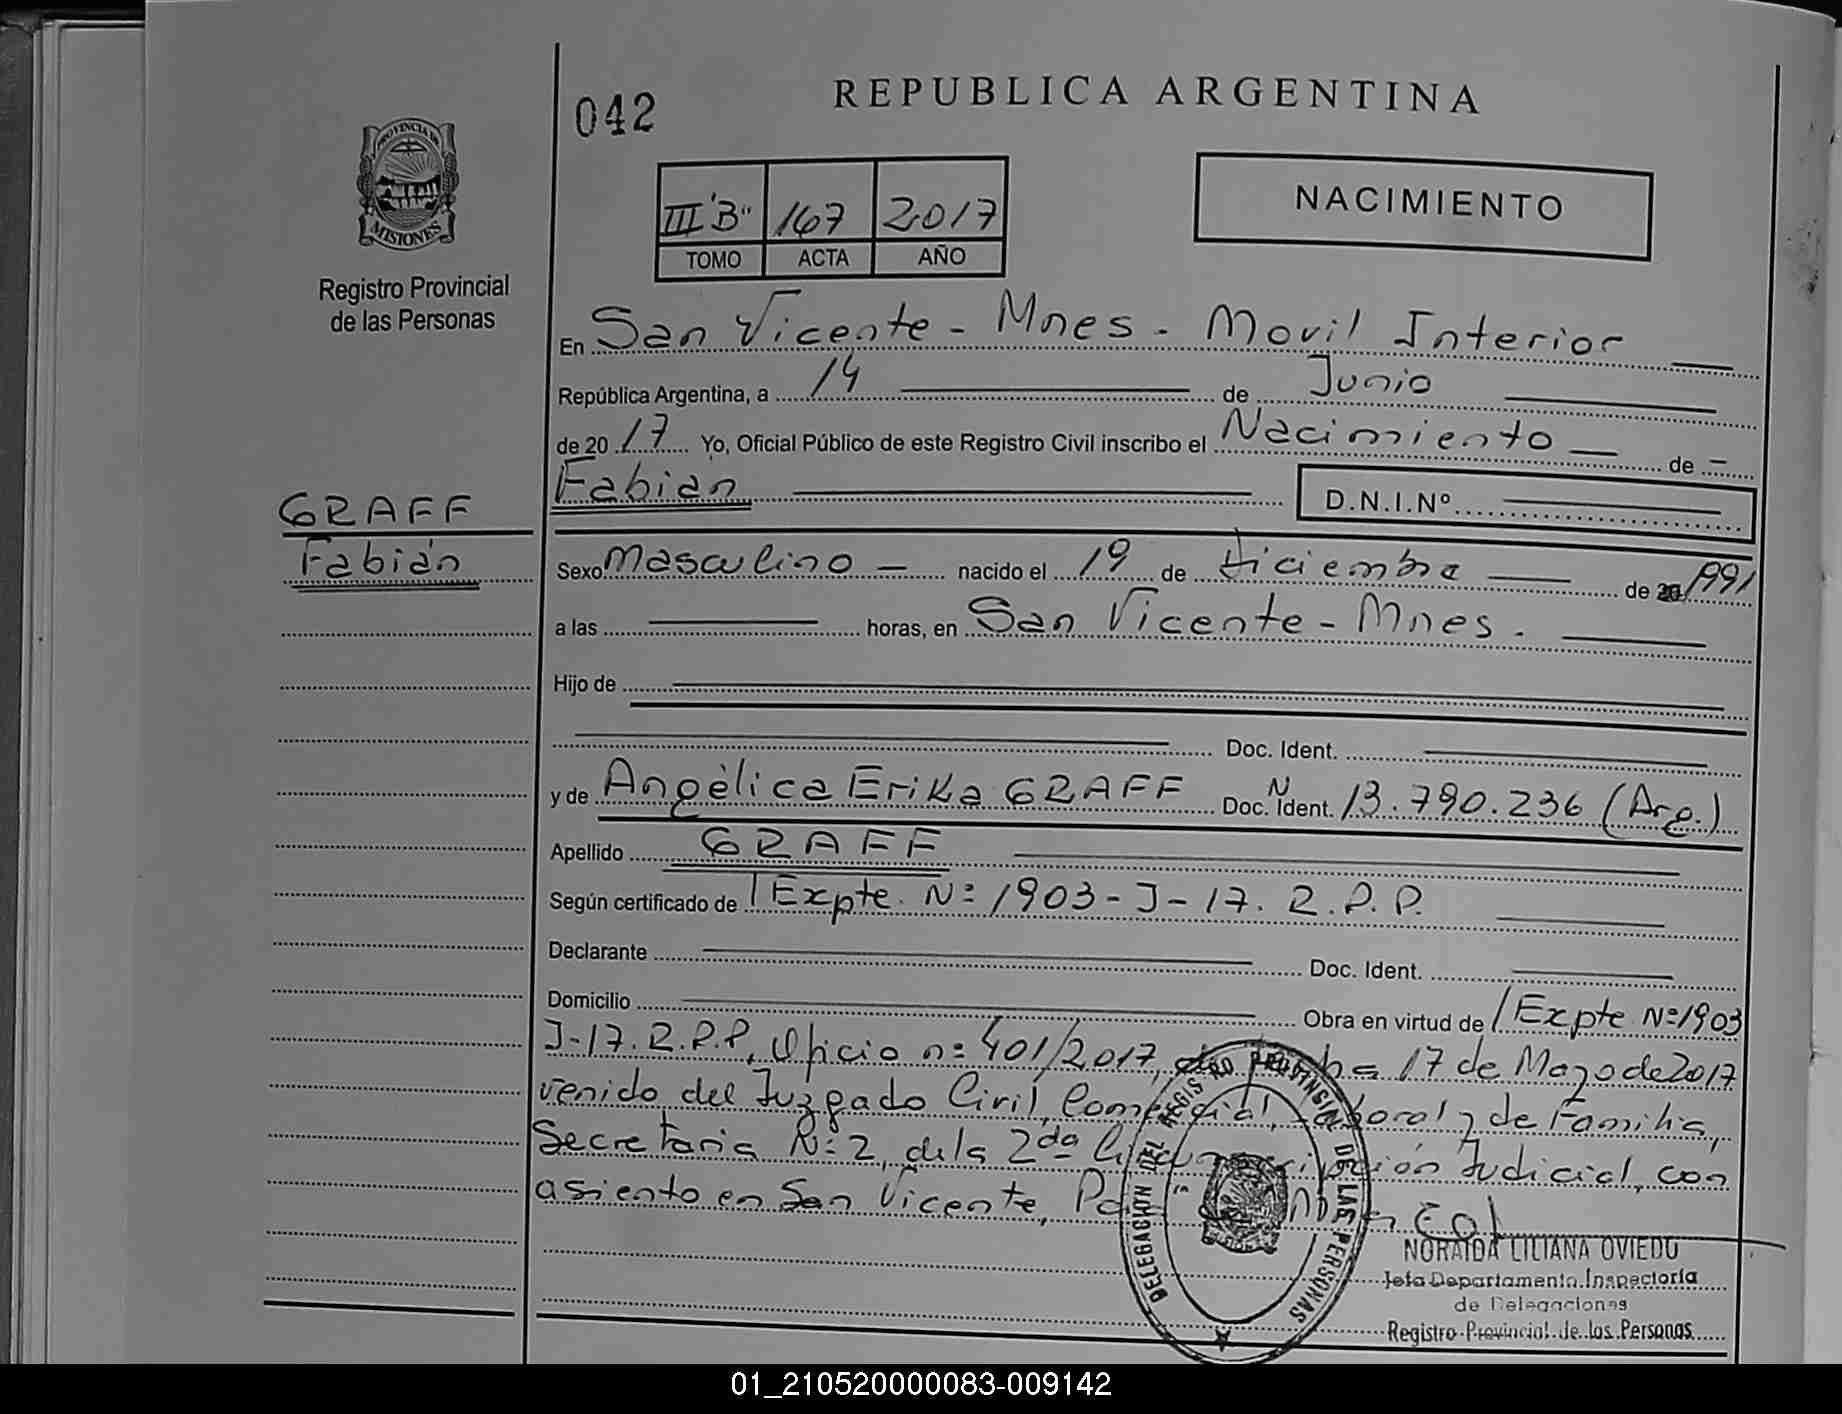 042
REPUBLICA ARGENTINA
PROVINCIA DE
MISIONES
Registro Provincial
de las Personas
III "B" 167 2017
TOMO ACTA AÑO
NACIMIENTO
En San Vicente - Mnes - Movil Interior
República Argentina, a 14 de Junio
de 2017 Yo, Oficial Público de este Registro Civil inscribo el Nacimiento de
Fabián D.N.I.Nº
GRAFF
Fabián
Sexo Masculino nacido el 19 de diciembre de 20 1991
a las horas, en San Vicente - Mnes.
Hijo de
Doc. Ident.
y de Angélica Erika GRAFF Doc. Ident. N 13.790.236 (Arg.)
Apellido GRAFF
Según certificado de Expte. Nº 1903-J-17. R.P.P.
Declarante Doc. Ident.
Domicilio Obra en virtud de Expte Nº 1903
J-17. R.P.P, Oficio nº 401/2017, 17 de Mayo de 2017
venido del Juzgado Civil, Comercial, Laboral y de Familia,
Secretaria Nº 2, de la 2da Circunscripción Judicial, con
asiento en San Vicente,
DELEGACION DEL REGISTRO PROVINCIAL DE LAS PERSONAS
NORAIDA LILIANA OVIEDO
Jefa Departamento Inspectoria
de Delegaciones
Registro Provincial de las Personas
01_210520000083-009142